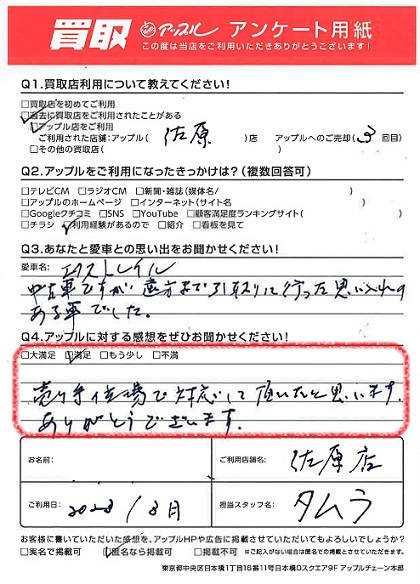 買取 アップル アンケート用紙
この度は当店をご利用いただきありがとうございます!
Q1.買取店利用について教えてください!
□買取店を初めてご利用
□過去に買取店をご利用されたことがある
□アップル店をご利用
ご利用された店舗:アップル( 佐原 )店 アップルへのご売却( 3 回目)
□その他の買取店( )
Q2.アップルをご利用になったきっかけは?(複数回答可)
□テレビCM □ラジオCM □新聞・雑誌(媒体名/ )
□アップルのホームページ □インターネット(サイト名 )
□Googleクチコミ □SNS □YouTube □顧客満足度ランキングサイト( )
□チラシ □利用経験があるので □紹介 □看板を見て
Q3.あなたと愛車との思い出をお聞かせください!
愛車名: エクストレイル
中古車ですが 遠方まで引取りに行った思い入れの
ある車でした。
Q4.アップルに対する感想をぜひお聞かせください!
□大満足 □満足 □もう少し □不満
売り手位場で対応して頂いたと思います。
ありがとうございます。
お名前:
ご利用店舗名: 佐原店
ご利用日: 2023 / 3月
担当スタッフ名: タムラ
お客様に書いていただいた感想を、アップルHPや広告に掲載させていただいてもよろしいでしょうか?
□実名で掲載可 □匿名なら掲載可 □掲載不可 ※ご記入がない場合は匿名での掲載とさせていただきます。
東京都中央区日本橋1丁目16番11号日本橋Dスクエア9F アップルチェーン本部